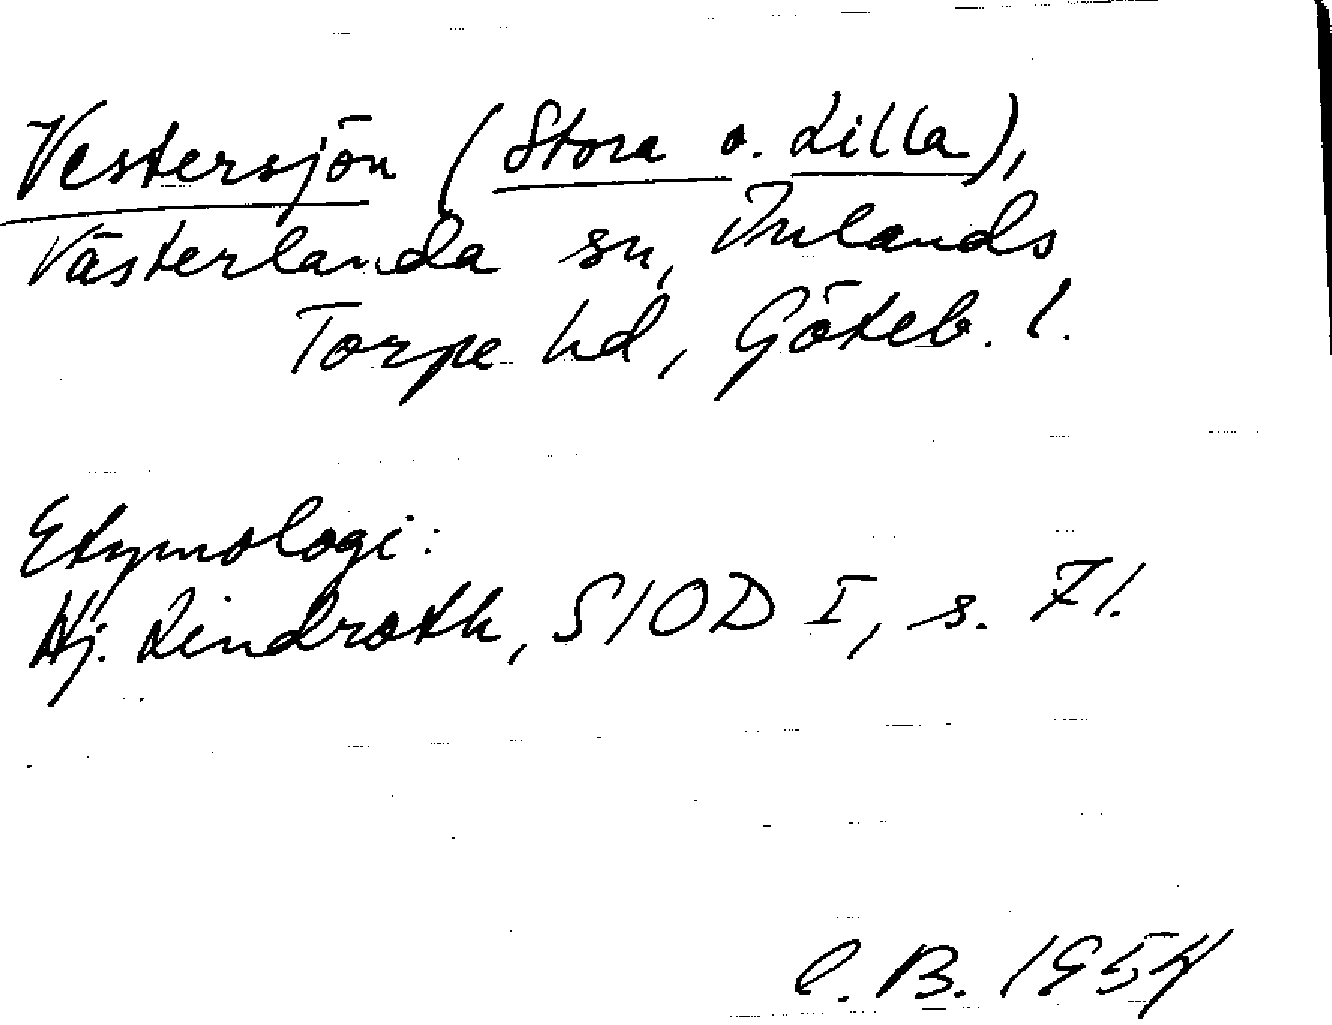 Vestersjön (Stora o. Lilla),
Västerlanda sn, Inlands
Torpe hd, Göteb. l.
Etymologi:
Hj. Lindroth, SIOD I, s. 71.
C. B. 1954